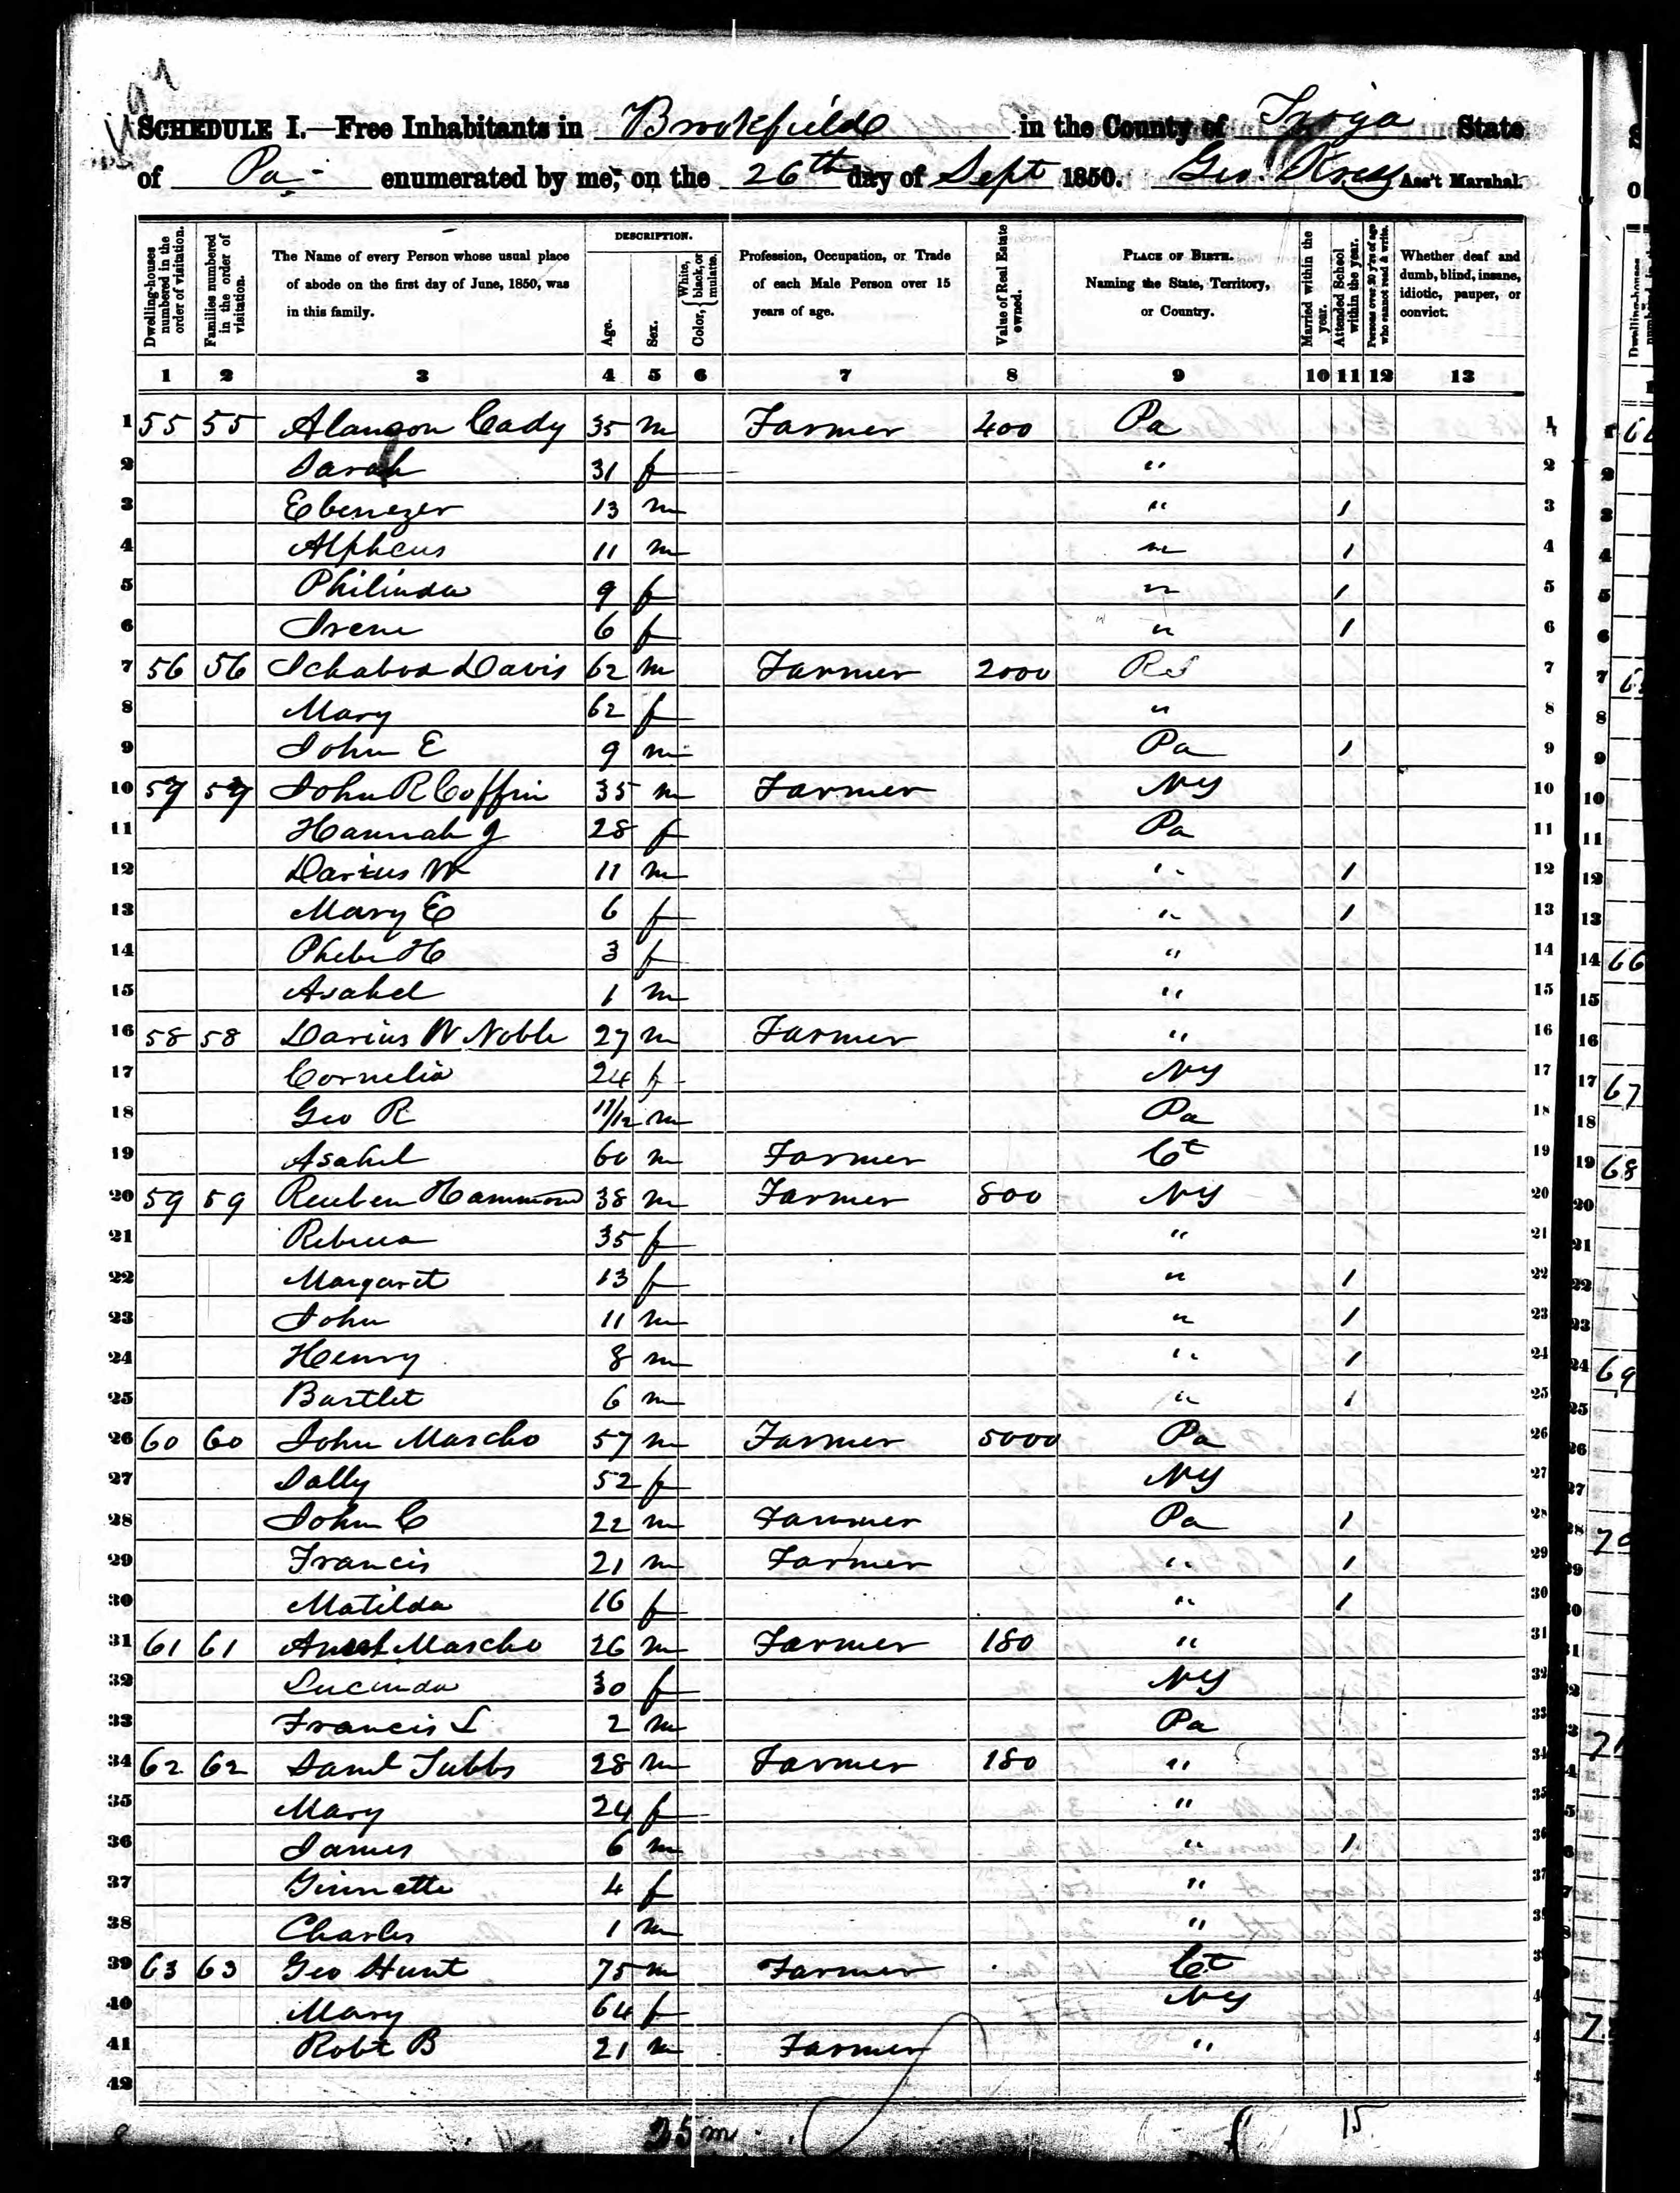 SCHEDULE I.—Free Inhabitants in Brookfield in the County of Tioga State
of Pa. enumerated by me, on the 26th day of Sept 1850. Geo. Kress Ass't Marshal.
Dwelling-houses numbered in the order of visitation.
Families numbered in the order of visitation.
The Name of every Person whose usual place of abode on the first day of June, 1850, was in this family.
DESCRIPTION.
Age.
Sex.
Color, { White, black, or mulatto.
Profession, Occupation, or Trade of each Male Person over 15 years of age.
Value of Real Estate owned.
PLACE OF BIRTH. Naming the State, Territory, or Country.
Married within the year.
Attended School within the year.
Persons over 20 y'rs of age who cannot read & write.
Whether deaf and dumb, blind, insane, idiotic, pauper, or convict.
1 2 3 4 5 6 7 8 9 10 11 12 13
1 55 55 Alanson Cady 35 m Farmer 400 Pa 1
2 Sarah 31 f " 2
3 Ebenezer 13 m " 1 3
4 Alpheus 11 m " 1 4
5 Philinda 9 f " 1 5
6 Irene 6 f " 1 6
7 56 56 Ichabod Davis 62 m Farmer 2000 R I 7
8 Mary 62 f " 8
9 John E 9 m Pa 1 9
10 57 57 John R Coffin 35 m Farmer NY 10
11 Hannah J 28 f Pa 11
12 Darius W 11 m " 1 12
13 Mary E 6 f " 1 13
14 Phebe H 3 f " 14
15 Asahel 1 m " 15
16 58 58 Darius W Noble 27 m Farmer " 16
17 Cornelia 24 f NY 17
18 Geo R 11/12 m Pa 18
19 Asahel 60 m Farmer Ct 19
20 59 59 Reuben Hammond 38 m Farmer 800 NY 20
21 Rebecca 35 f " 21
22 Margaret 13 f " 1 22
23 John 11 m " 1 23
24 Henry 8 m " 1 24
25 Bartlet 6 m " 1 25
26 60 60 John Mascho 57 m Farmer 5000 Pa 26
27 Sally 52 f NY 27
28 John C 22 m Farmer Pa 1 28
29 Francis 21 m Farmer " 1 29
30 Matilda 16 f " 1 30
31 61 61 Mascho 26 m Farmer 180 " 31
32 Lucinda 30 f NY 32
33 Francis L 2 m Pa 33
34 62 62 Saml Tubbs 28 m Farmer 180 " 34
35 Mary 24 f " 35
36 James 6 m " 1 36
37 Ginnette 4 f " 37
38 Charles 1 m "
39 63 63 Geo Hunt 75 m Farmer Ct
40 Mary 64 f NY
41 Robt B 21 m Farmer "
42
25 m 15